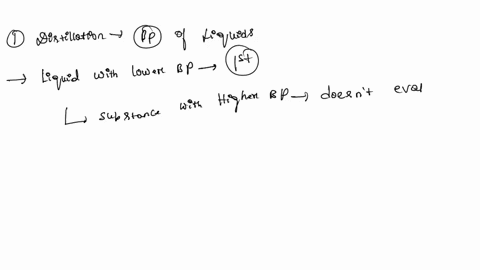 ① Distillation → BP of Liquids
→ Liquid with lower BP → 1st
↳ substance with Higher BP → doesn't eva